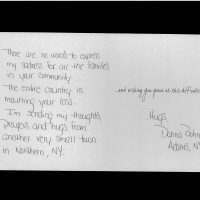 There are no words to express
my sadness for all the families
in your community.
The entire country is
mourning your loss.
I'm sending my thoughts,
prayers and hugs from
another very small town
in Northern, NY.
and wishing you peace at this difficult
Hugs,
Donna
Adams, NY